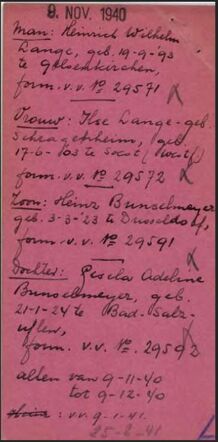 9. NOV. 1940
Man: Heinrich Wilhelm
Lange, geb. 19-9-'93
te Gelsenkirchen,
form. v.v. No 29571
Vrouw: Ilse Lange-geb.
Schragenheim, geb
17-6-'03 te Soest (Westf)
form. v.v. No 29572
Zoon: Heinz Bunselmeyer
geb. 3-3-'23 te Dusseldorf,
form. v.v. No 29591
Dochter: Gisela Adeline
Bunselmeyer, geb.
21-1-24 te Bad-Salz-
uflen,
form. v.v. No. 29592
allen van 9-11-40
tot 9-12-40
: v.v. 9-1-41.
25-2-41